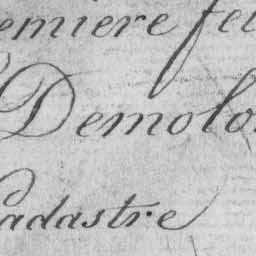 emiere fe
Demolo
Cadastre